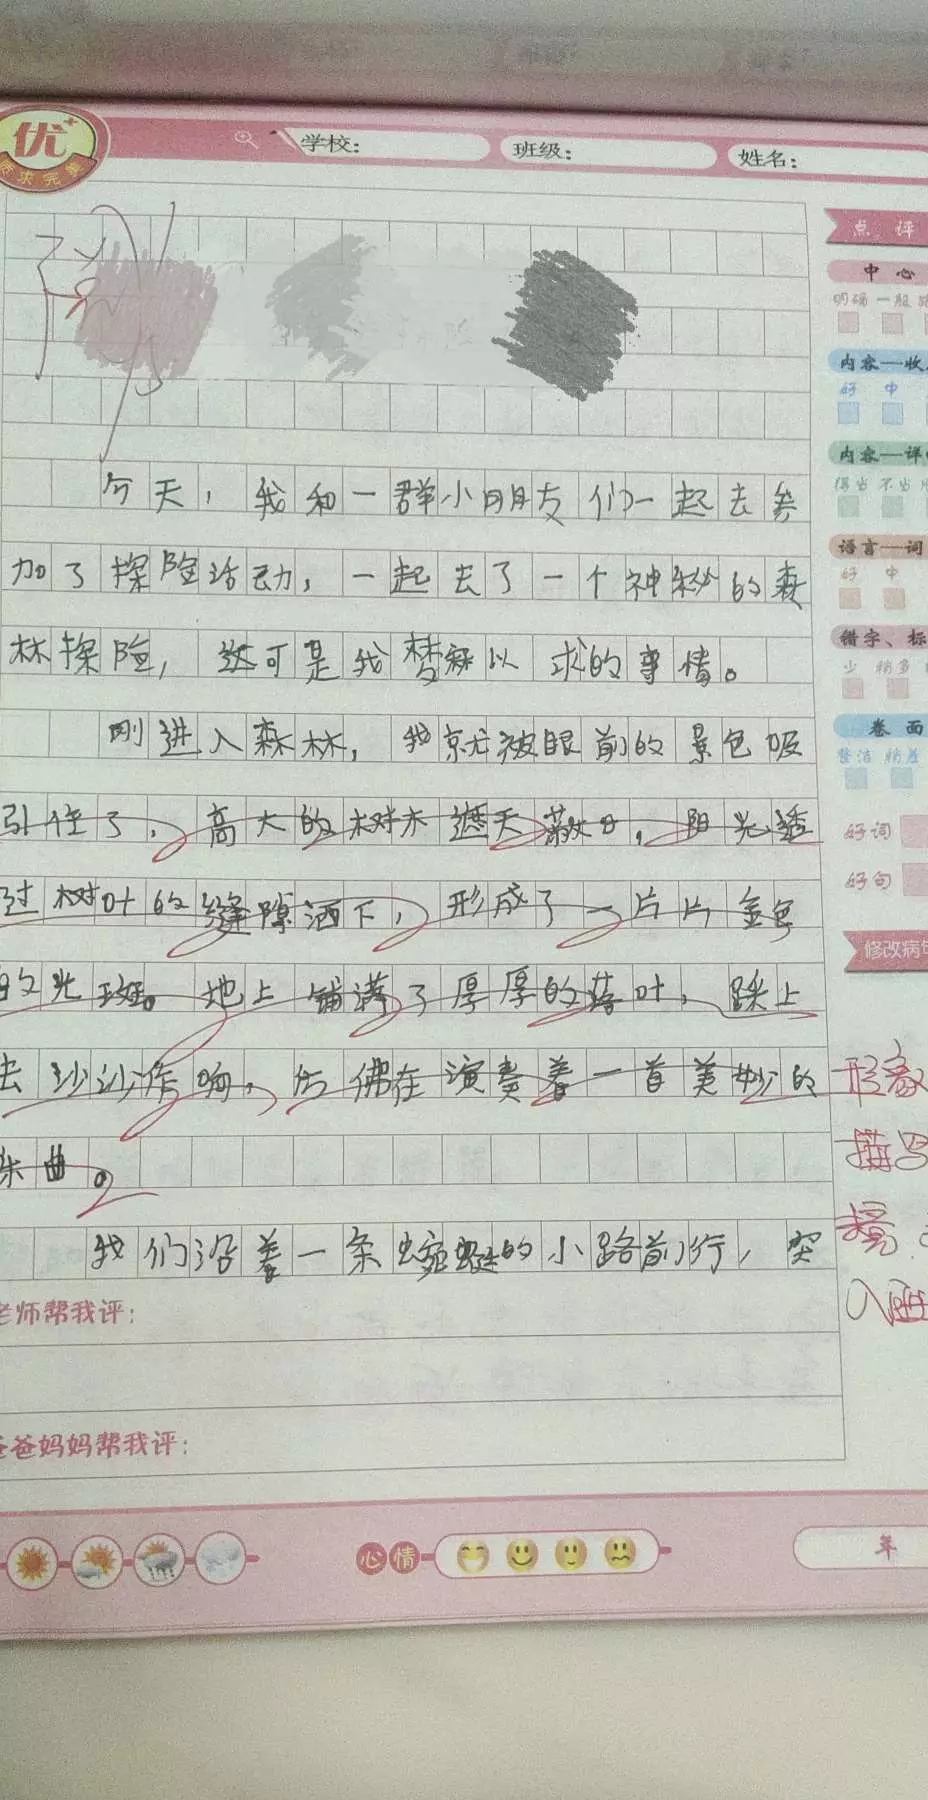 优+
质求完美
学校:
班级:
姓名:
点评
中心
明确 一般
内容—收
好 中
内容—详
得当 不当
语言—词
好 中
错字、标
少 稍多
卷面
整洁 稍差
好词
好句
修改病句
今天，我和一群小朋友们一起去参
加了探险活动，一起去了一个神秘的森
林探险，这可是我梦寐以求的事情。
刚进入森林，我就被眼前的景色吸
引住了，高大的树木遮天蔽日，阳光透
过树叶的缝隙洒下，形成了一片片金色
的光斑。地上铺满了厚厚的落叶，踩上
去沙沙作响，仿佛在演奏着一首美妙的
乐曲。
我们沿着一条蜿蜒的小路前行，突
形象
描写
入画
老师帮我评:
爸爸妈妈帮我评:
心情
年